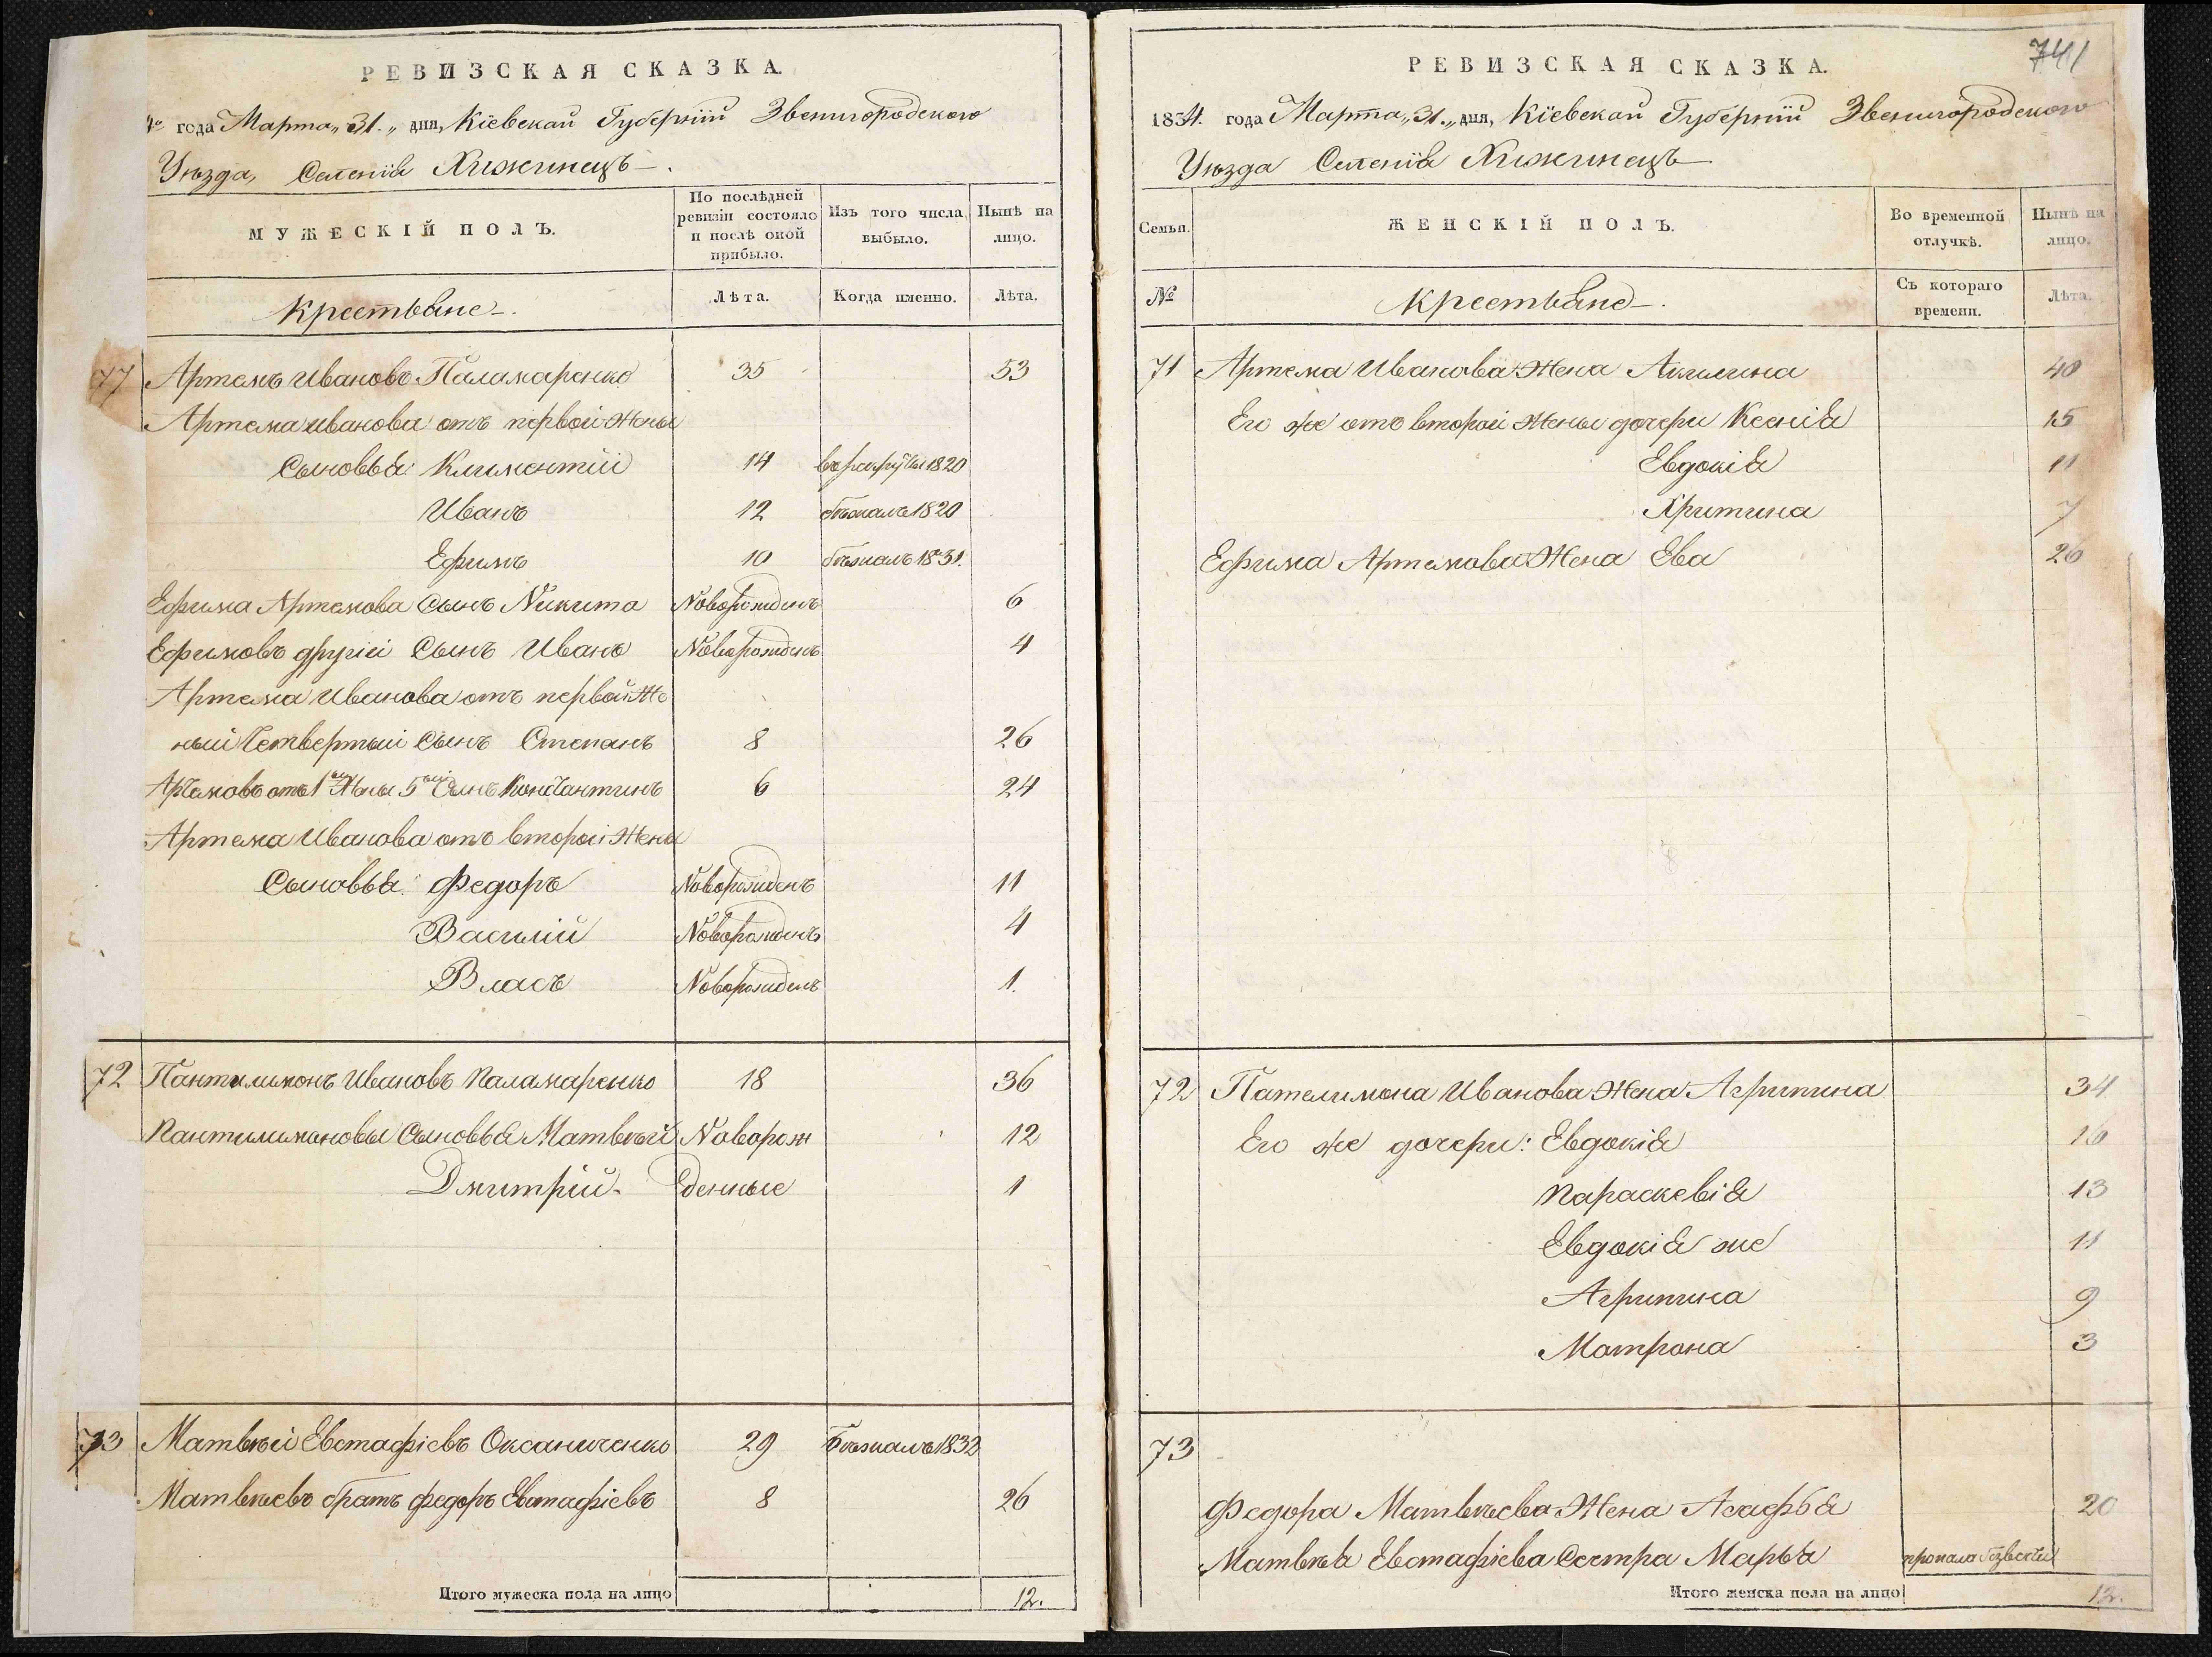 РЕВИЗСКАЯ СКАЗКА.
года Марта „31.„ дня, Кіевской Губерніи Звенигородского
Уѣзда, Селенія Хижинецъ
МУЖЕСКІЙ ПОЛЪ.
По послѣдней ревизіи состояло и послѣ оной прибыло.
Изъ того числа выбыло.
Нынѣ на лицо.
Крестьяне
Лѣта.
Когда именно.
Лѣта.
Артемъ Ивановъ Паламаренко 35 53
Артема Иванова отъ первой жены
Сыновья Климентій 14 1820
Иванъ 12 1820
Ефимъ 10 бѣжалъ 1831.
Ефима Артемова Сынъ Никита Новорожденъ 6
Ефимовъ другій Сынъ Иванъ Новорожденъ 4
Артема Иванова отъ первой Же
ный Четвертый Сынъ Степанъ 8 26
отъ 1 5 Сынъ Константинъ 6 24
Артема Иванова отъ второй Жены
Сыновья: Федоръ Новорожденъ 11
Василій Новорожденъ 4
Власъ Новорожденъ 1.
72 Пантилимонъ Ивановъ Паламаренко 18 36
Пантилимоновы Сыновья Матвѣй Новорож 12
Дмитрій. денные 1
73 Матвѣй Евстафіевъ Оксаниченко 29 Бѣжалъ 1832
Матвѣевъ братъ Федоръ Евстафіевъ 8 26
Итого мужеска пола на лицо 12.
741
РЕВИЗСКАЯ СКАЗКА.
1834. года Марта „31.„ дня, Кіевской Губерніи Звенигородского
Уѣзда Селенія Хижинецъ
Семьи.
ЖЕНСКІЙ ПОЛЪ.
Во временной отлучкѣ.
Нынѣ на лицо.
№
Крестьяне.
Съ котораго времени.
Лѣта.
71 Артема Иванова Жена Акилина 40
Его же отъ второй Жены дочери Ксенія 15
Евдокія 11
Хритина 7
Ефима Артемова Жена Ева 26
72 Пателимона Иванова Жена Агрипина 34
Его же дочери: Евдокія 16
Параскевія 13
Евдокія же 11
Агрипина 9
Матрона 3
73
Федора Матвѣева Жена Агафья 20
Матвѣя Евстафіева Сестра Марья пропала
Итого женска пола на лицо 12.